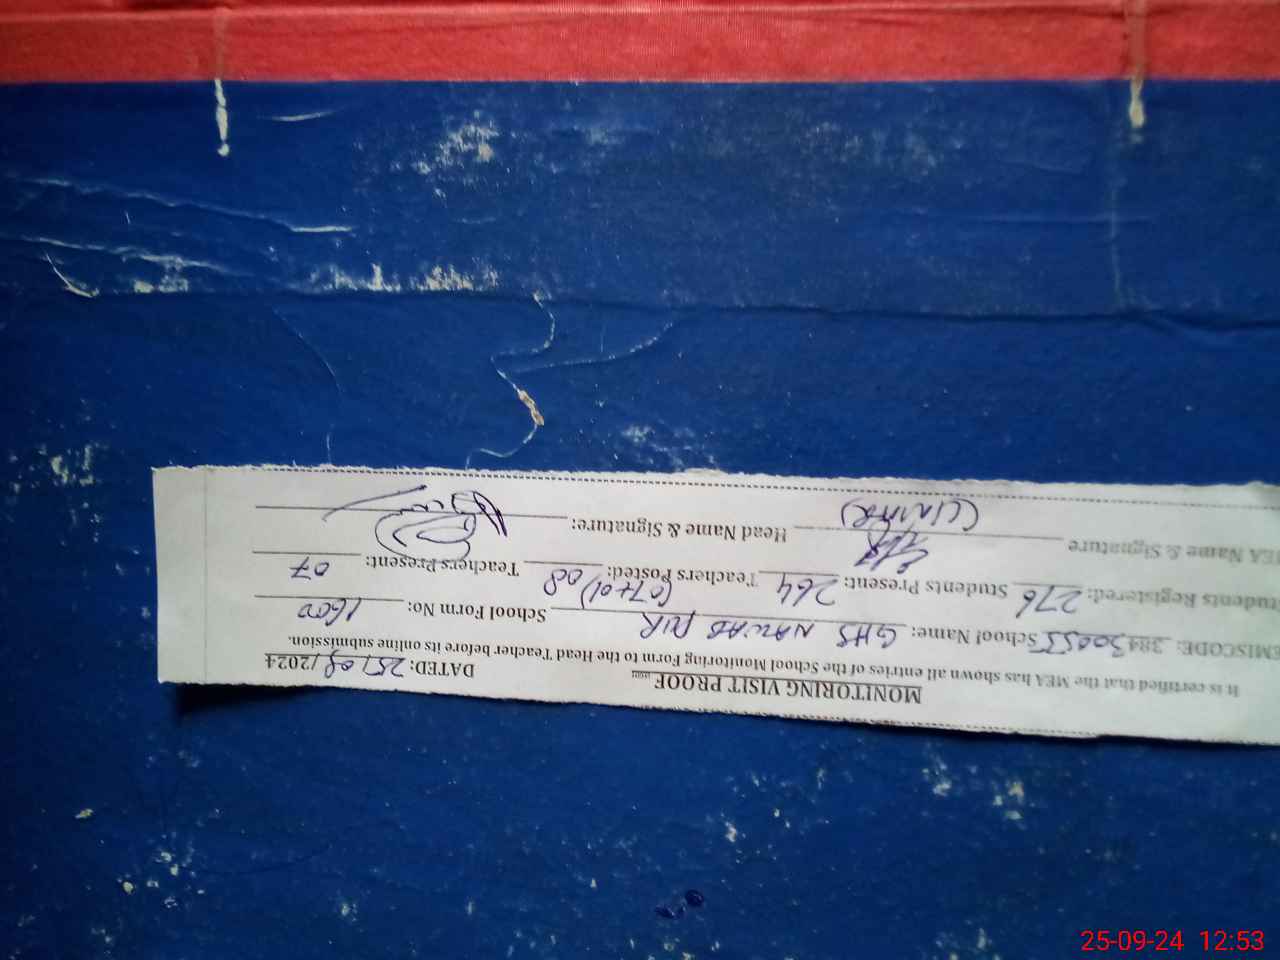 MONITORING VISIT PROOF
DATED: 25/09/2024
It is certified that the MEA has shown all entries of the School Monitoring Form to the Head Teacher before its online submission.
EMISCODE: 38430055 School Name: GHS NAWAB PUR School Form No: 1600
tudents Registered: 276 Students Present: 264 Teachers Posted: (07+01) 08 Teachers Present: 07
EA Name & Signature Head Name & Signature:
25-09-24 12:53